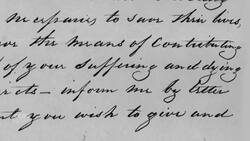 Necessaries to save their lives
the means of Contributing
of your suffering and dying
inform me by letter
you wish to give and